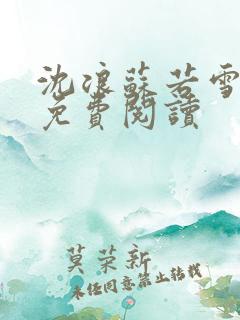 沈浪蘇若雪
免費閱讀
莫荣新
未经同意禁止转载